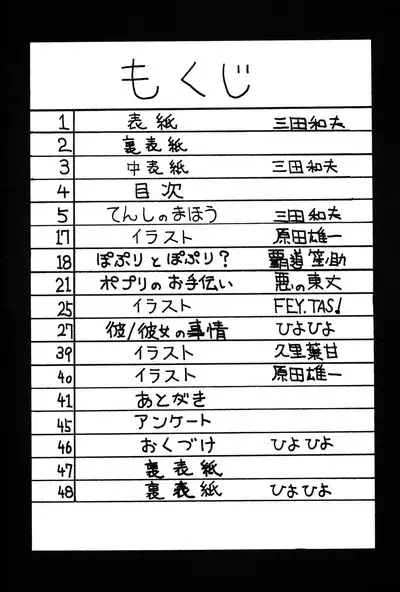 もくじ
1 表紙 三田和夫
2 裏表紙
3 中表紙 三田和夫
4 目次
5 てんしのまほう 三田和夫
17 イラスト 原田雄一
18 ぽぷりとぽぷり? 覇道笙助
21 ポプリのお手伝い 悪の東大
25 イラスト FEY.TAS!
27 彼/彼女の事情 ひよひよ
39 イラスト 久里葉甘
40 イラスト 原田雄一
41 あとがき
45 アンケート
46 おくづけ ひよひよ
47 裏表紙
48 裏表紙 ひよひよ